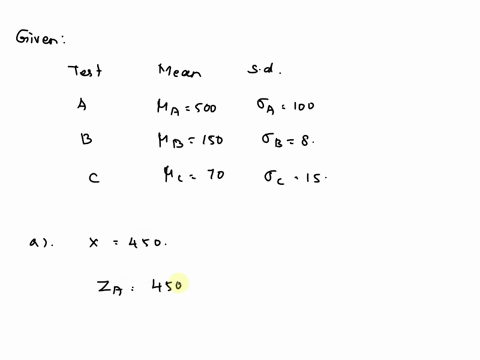 Given:
Test Mean s.d.
A μA = 500 σA = 100
B μB = 150 σB = 8.
C μC = 70 σC = 15.
a). x = 450.
ZA = 450